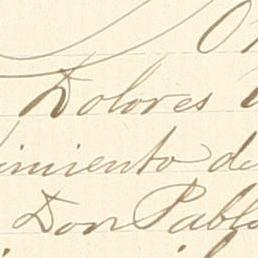 Dolores
imiento de
Don Pablo